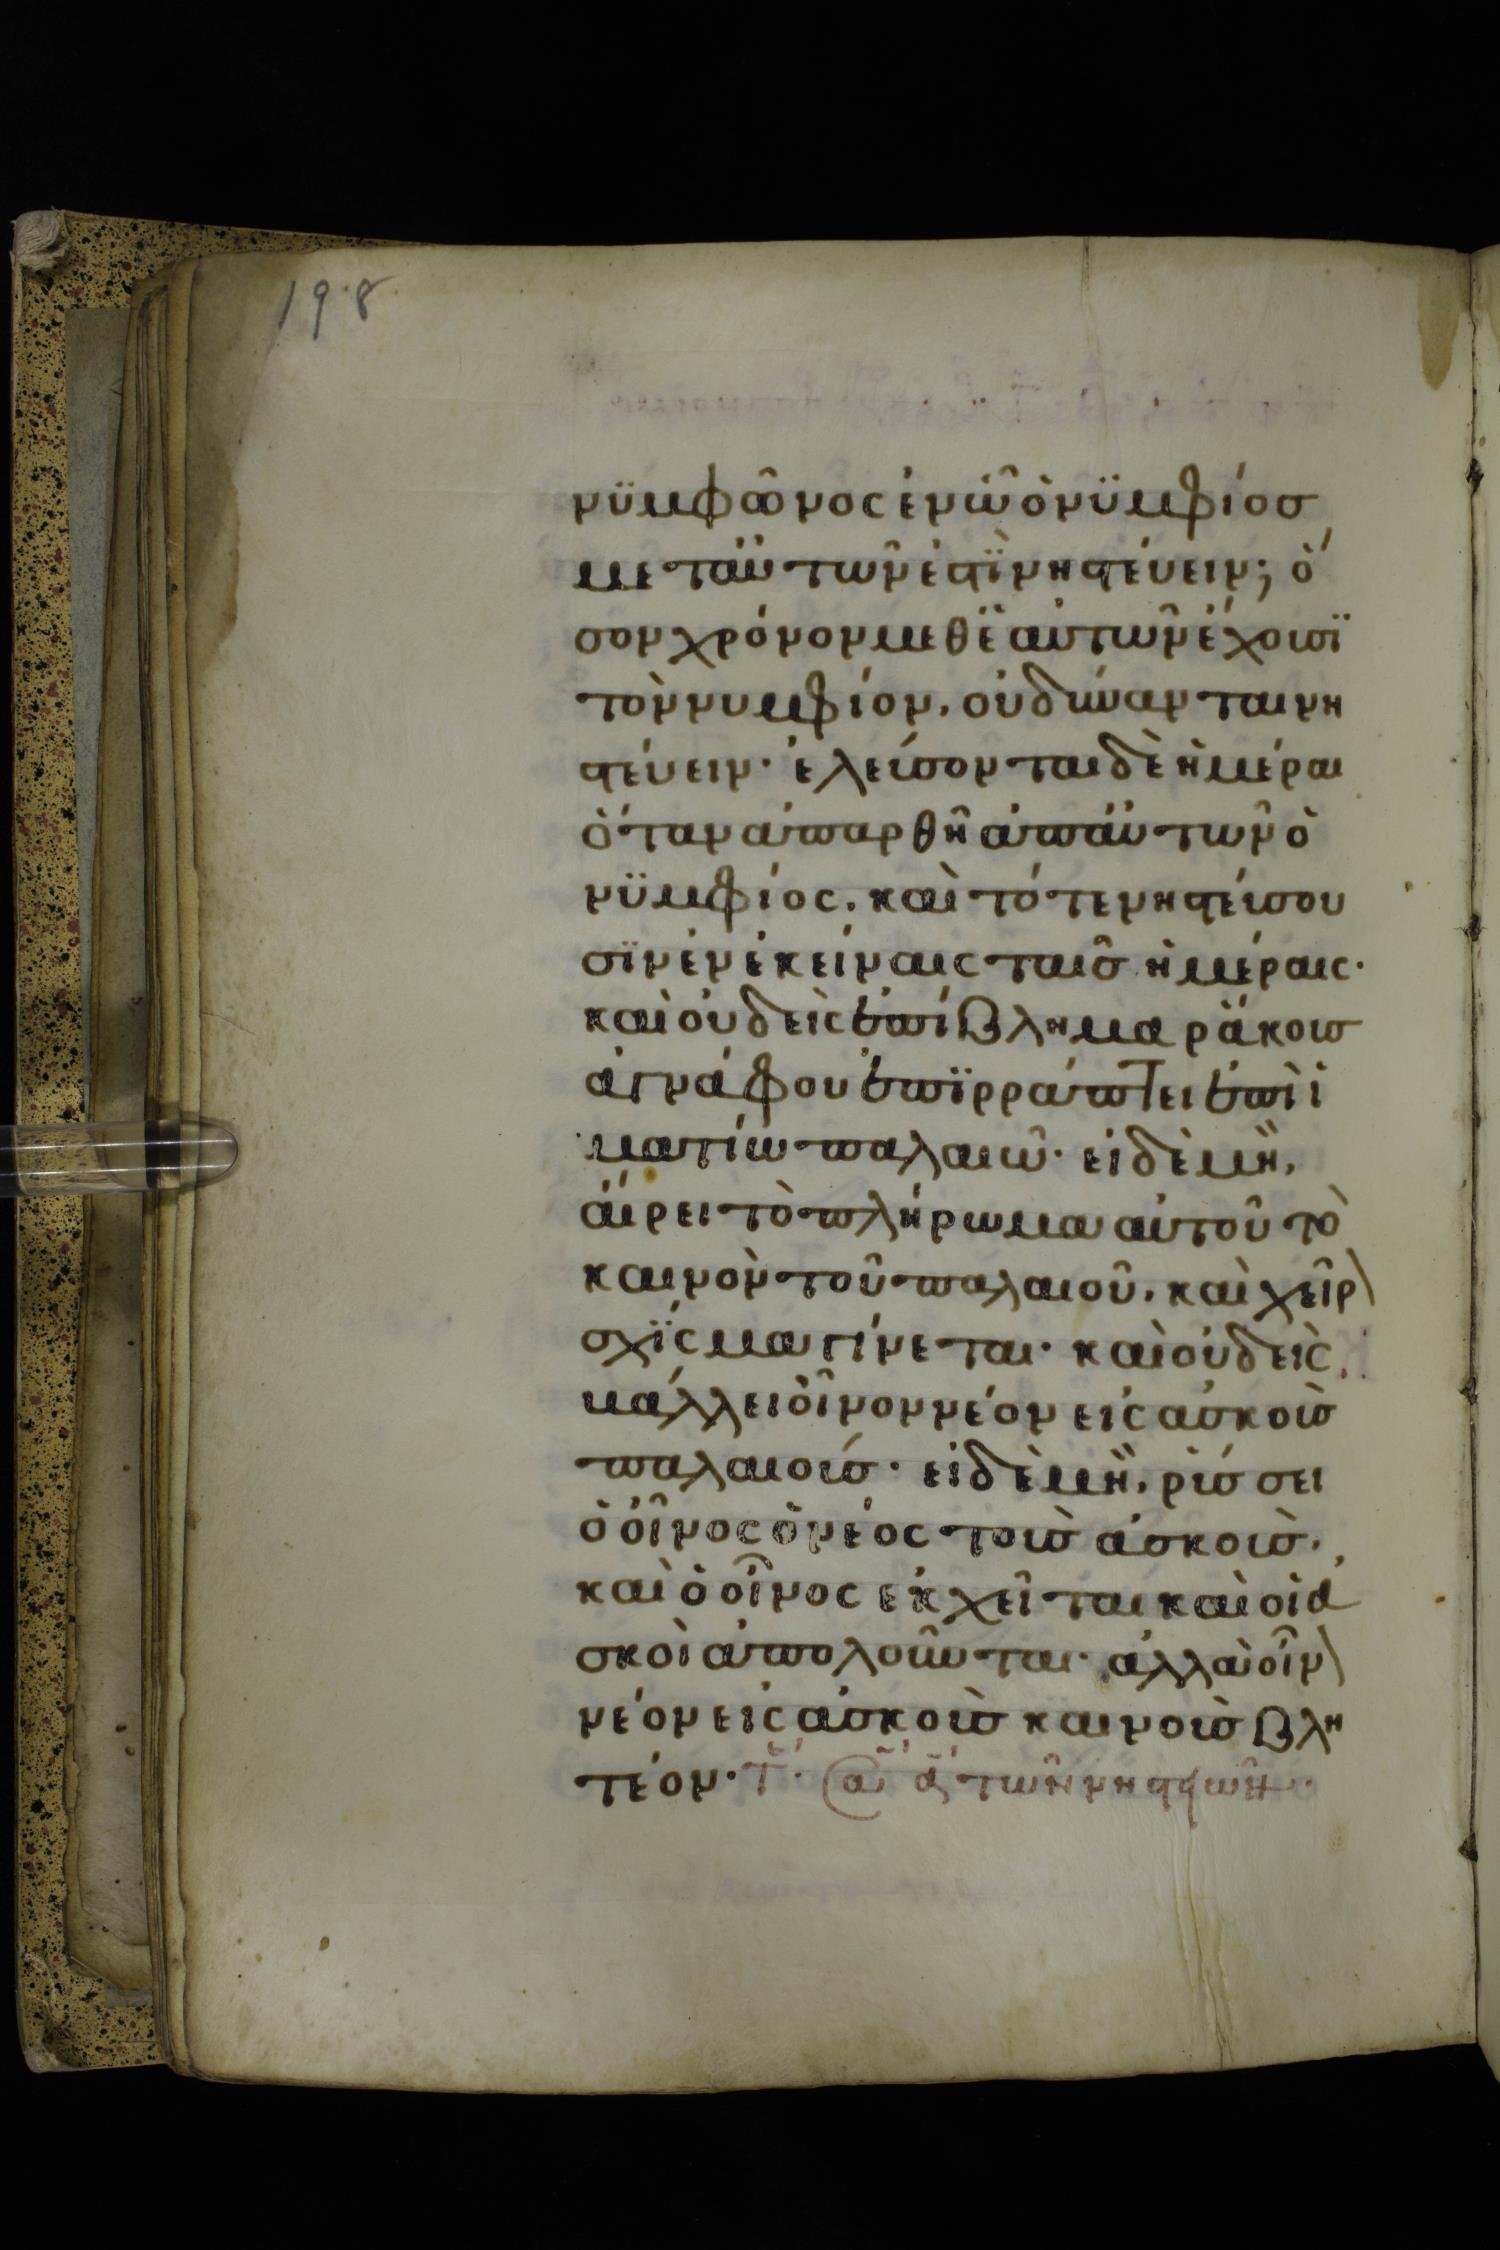 198
νϋμφῶνος ἐν ὧ ὁ νϋμφίοσ
μετ' ἀυτῶν ἐστϊ νηστέυειν; ὅ
σον χρόνον μεθ' ἑαυτῶν ἔχουσϊ
τὸν νυμφίον, οὐ δύνανται νη
στέυειν· ἐλεύσονται δὲ ἡμέραι
ὅταν ἀπαρθῆ ἀπ' ἀυτῶν ὁ
νϋμφίος, καὶ τότε νηστέυσου
σϊν ἐν ἐκείναις ταῖσ ἡμέραις·
καὶ οὐδεὶς ἐπίβλημα ῥάκουσ
ἀγνάφου ἐπϊρράπτει ἐπὶ ἱ
ματίω παλαιῶ· εἰ δὲ μὴ,
αἴρει τὸ πλήρωμα αὐτοῦ τὸ
καινὸν τοῦ παλαιοῦ, καὶ χεῖρ\
σχΐςμα γίνεται· καὶ οὐδεὶς
βάλλει οἶνον νέον εἰς ἀσκοὺσ
παλαιούσ· εἰ δὲ μὴ, ῥύσσει
ὁ οἶνος ὁ νέος τοὺσ ἀσκοὺσ,
καὶ ὁ οἶνος ἐκχεῖται καὶ οἱ ἀ
σκοὶ ἀπολοῦνται· ἀλλὰ οἶν\
νέον εἰς ἀσκοὺσ καινοὺσ βλη
τέον· τ· σα α τῶν νηστϊῶν·